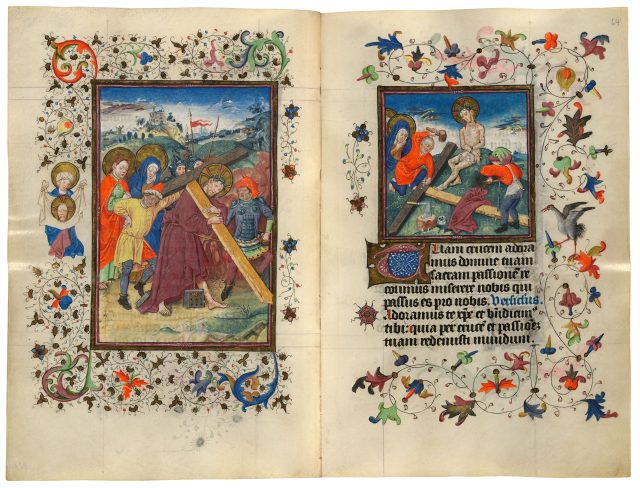 64
Tuam crucem adora
mus domine tuam
sanctam passionē re
colimus miserere nobis qui
passus es pro nobis. Versiclus.
Adoramus te xp̄e et bn̄dicim⁹
tibi: quia per crucē et passioēz
tuam redemisti mundum.